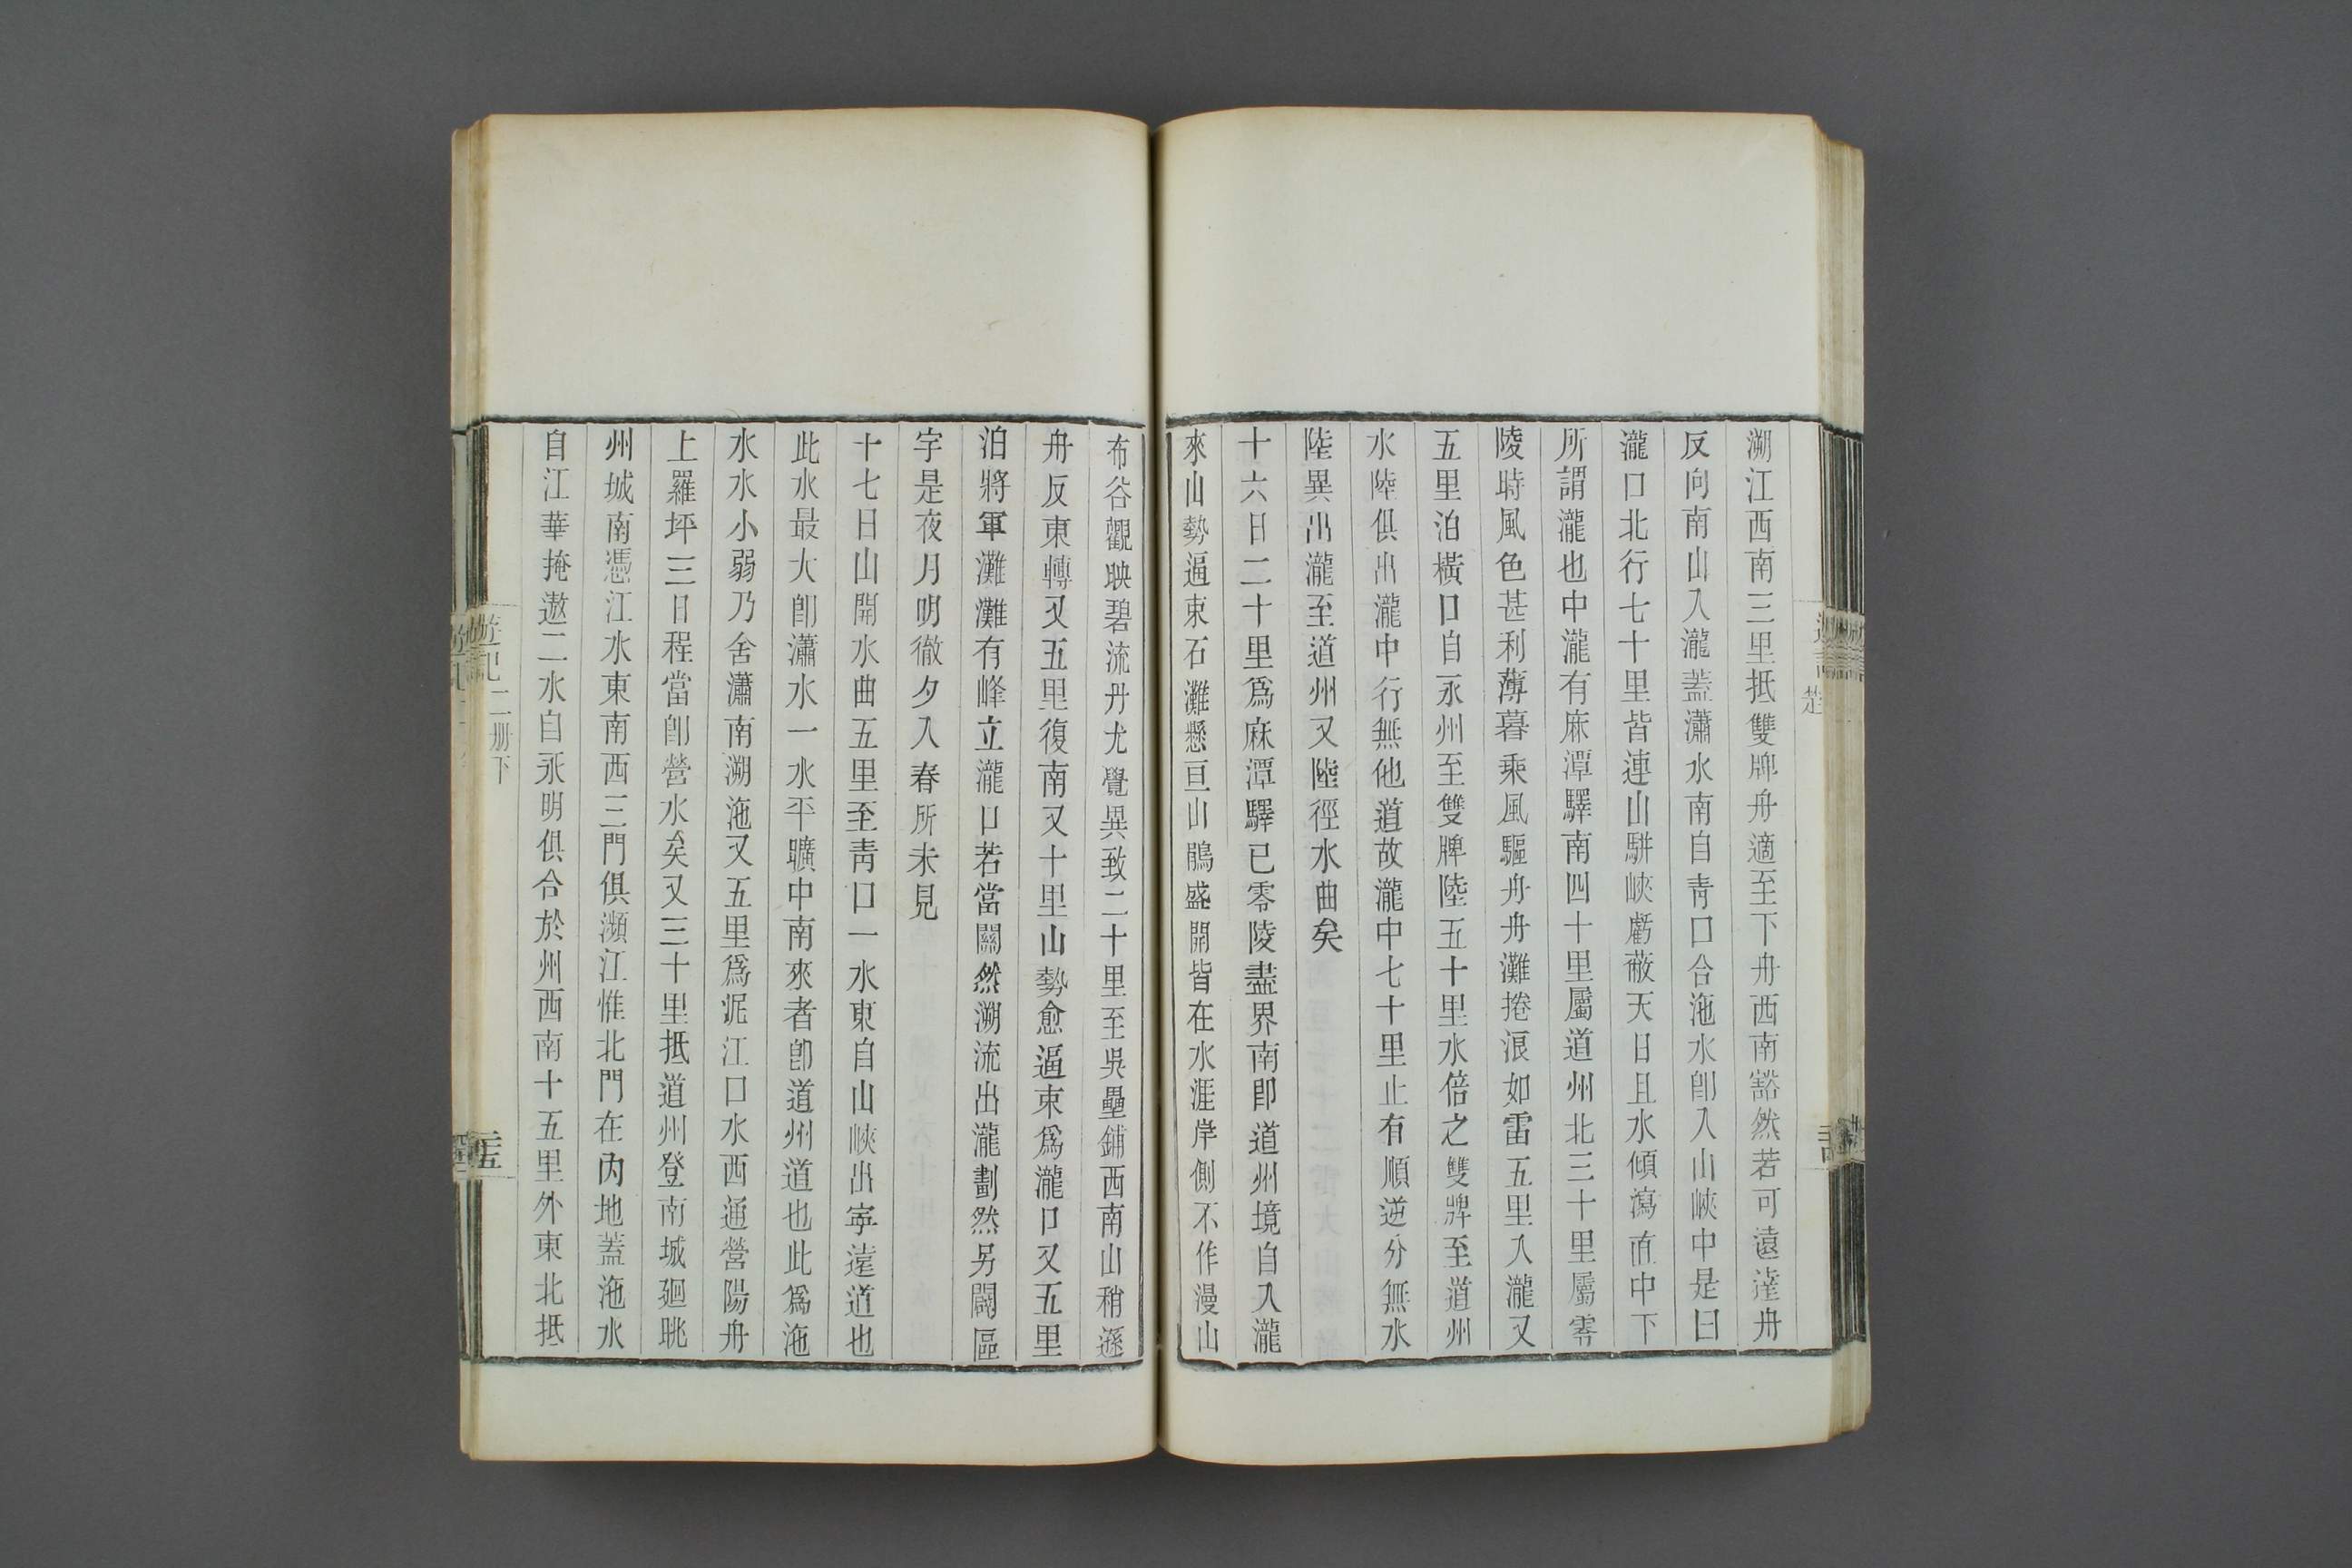 溯江西南三里抵雙牌舟適至下舟西南豁然若可遠達舟
反向南山入瀧蓋瀟水南自靑口合沲水卽入山峽中是曰
瀧口北行七十里皆連山駢峽虧蔽天日且水傾瀉直中下
所謂瀧也中瀧有麻潭驛南四十里屬道州北三十里屬零
陵時風色甚利薄暮乘風驅舟舟灘捲浪如雷五里入瀧又
五里泊橫口自永州至雙牌陸五十里水倍之雙牌至道州
水陸俱出瀧中行無他道故瀧中七十里止有順逆分無水
陸異出瀧至道州又陸徑水曲矣
十六日二十里爲麻潭驛已零陵盡界南卽道州境自入瀧
來山勢逼束石灘懸亘山鵑盛開皆在水涯岸側不作漫山
布谷觀映碧流丹尤覺異致二十里至吳壘鋪西南山稍遜
舟反東轉又五里復南又十里山勢愈逼束爲瀧口又五里
泊將軍灘灘有峰立瀧口若當關然溯流出瀧劃然另闢區
宇是夜月明徹夕入春所未見
十七日山開水曲五里至靑口一水東自山峽出寜遠道也
此水最大卽瀟水一水平曠中南來者卽道州道也此爲沲
水水小弱乃舍瀟南溯沲又五里爲泥江口水西通營陽舟
上羅坪三日程當卽營水矣又三十里抵道州登南城廻眺
州城南憑江水東南西三門俱瀕江惟北門在內地蓋沲水
自江華掩遨二水自永明俱合於州西南十五里外東北抵
遊記
二册下
二十五